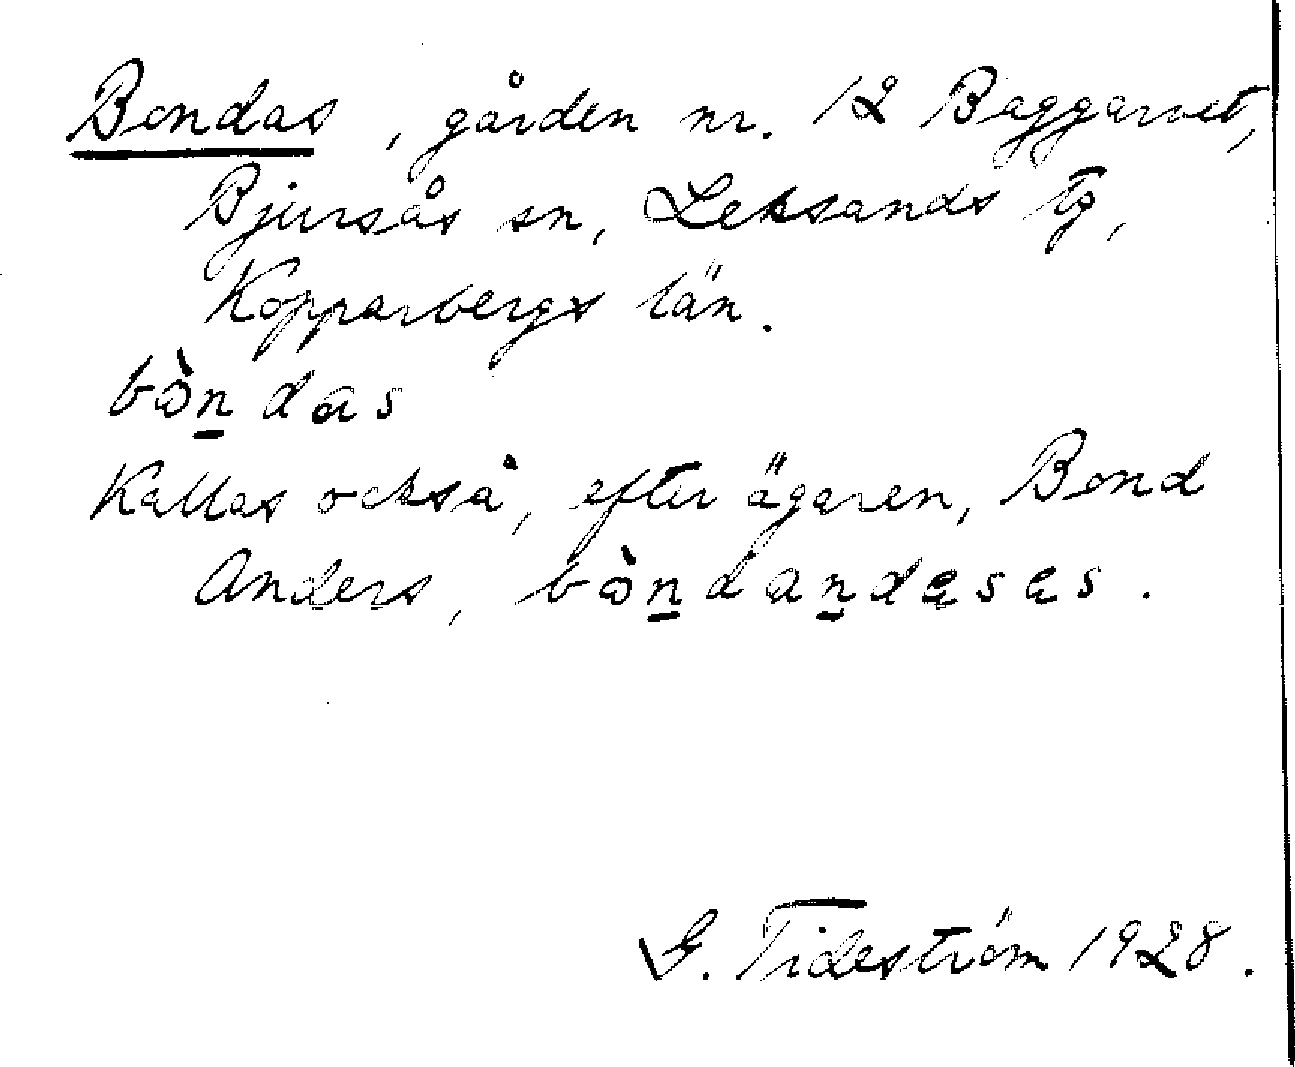 Bondas, gården nr. 12 Baggarvet,
Bjursås sn, Leksands tg,
Kopparbergs län.
bò̱n̲das
Kallas också, efter ägaren, Bond
Anders, bòn̲dan̲dasas.
G. Tideström 1928.